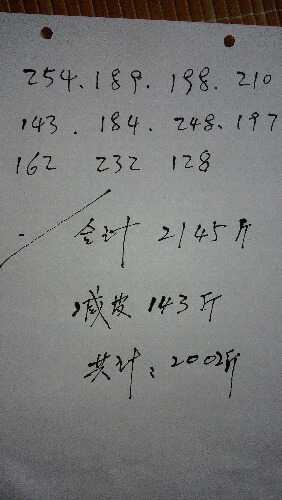 254. 189. 198. 210
143. 184. 248. 197
162 232 128
合计 2145斤
减皮 143斤
共计: 2002斤